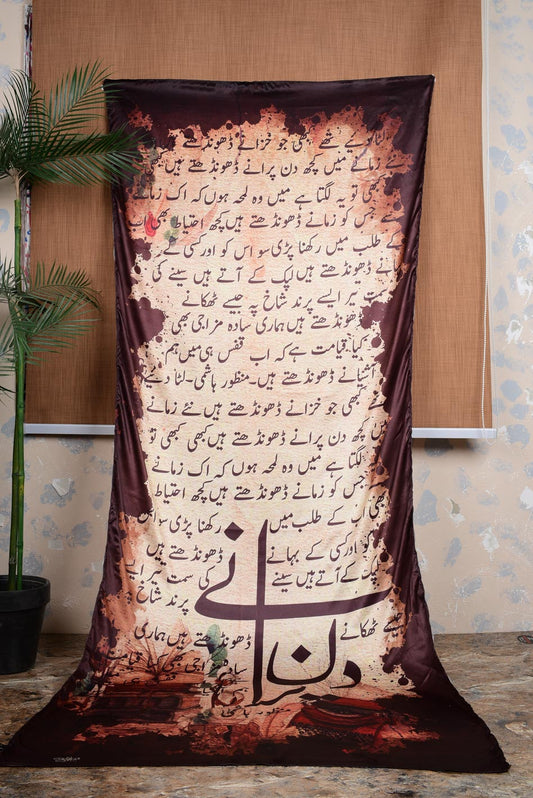 لٹا دیے تھے کبھی جو خزانے ڈھونڈھتے ہیں
نئے زمانے میں کچھ دن پرانے ڈھونڈھتے ہیں
کبھی تو یہ لگتا ہے میں وہ لمحہ ہوں کہ اک زمانے
سے جس کو زمانے ڈھونڈھتے ہیں کچھ احتیاط بھی اب
کے طلب میں رکھنا پڑی سو اس کو اور کسی کے
بہانے ڈھونڈھتے ہیں لپک کے آتے ہیں سینے کی
سمت تیر ایسے پرند شاخ پہ جیسے ٹھکانے
ڈھونڈھتے ہیں ہماری سادہ مزاجی بھی
کیا قیامت ہے کہ اب قفس ہی میں ہم
آشیانے ڈھونڈھتے ہیں۔ منظور ہاشمی۔ لٹا دیے
تھے کبھی جو خزانے ڈھونڈھتے ہیں نئے زمانے
میں کچھ دن پرانے ڈھونڈھتے ہیں کبھی کبھی تو
لگتا ہے میں وہ لمحہ ہوں کہ اک زمانے
سے جس کو زمانے ڈھونڈھتے ہیں کچھ احتیاط
بھی اب کے طلب میں رکھنا پڑی سو اس
کو اور کسی کے بہانے ڈھونڈھتے ہیں
لپک کے آتے ہیں سینے کی سمت تیر ایسے
پرند شاخ پہ
جیسے ٹھکانے ڈھونڈھتے ہیں ہماری
سادہ مزاجی بھی کیا قیامت
دن پرانے